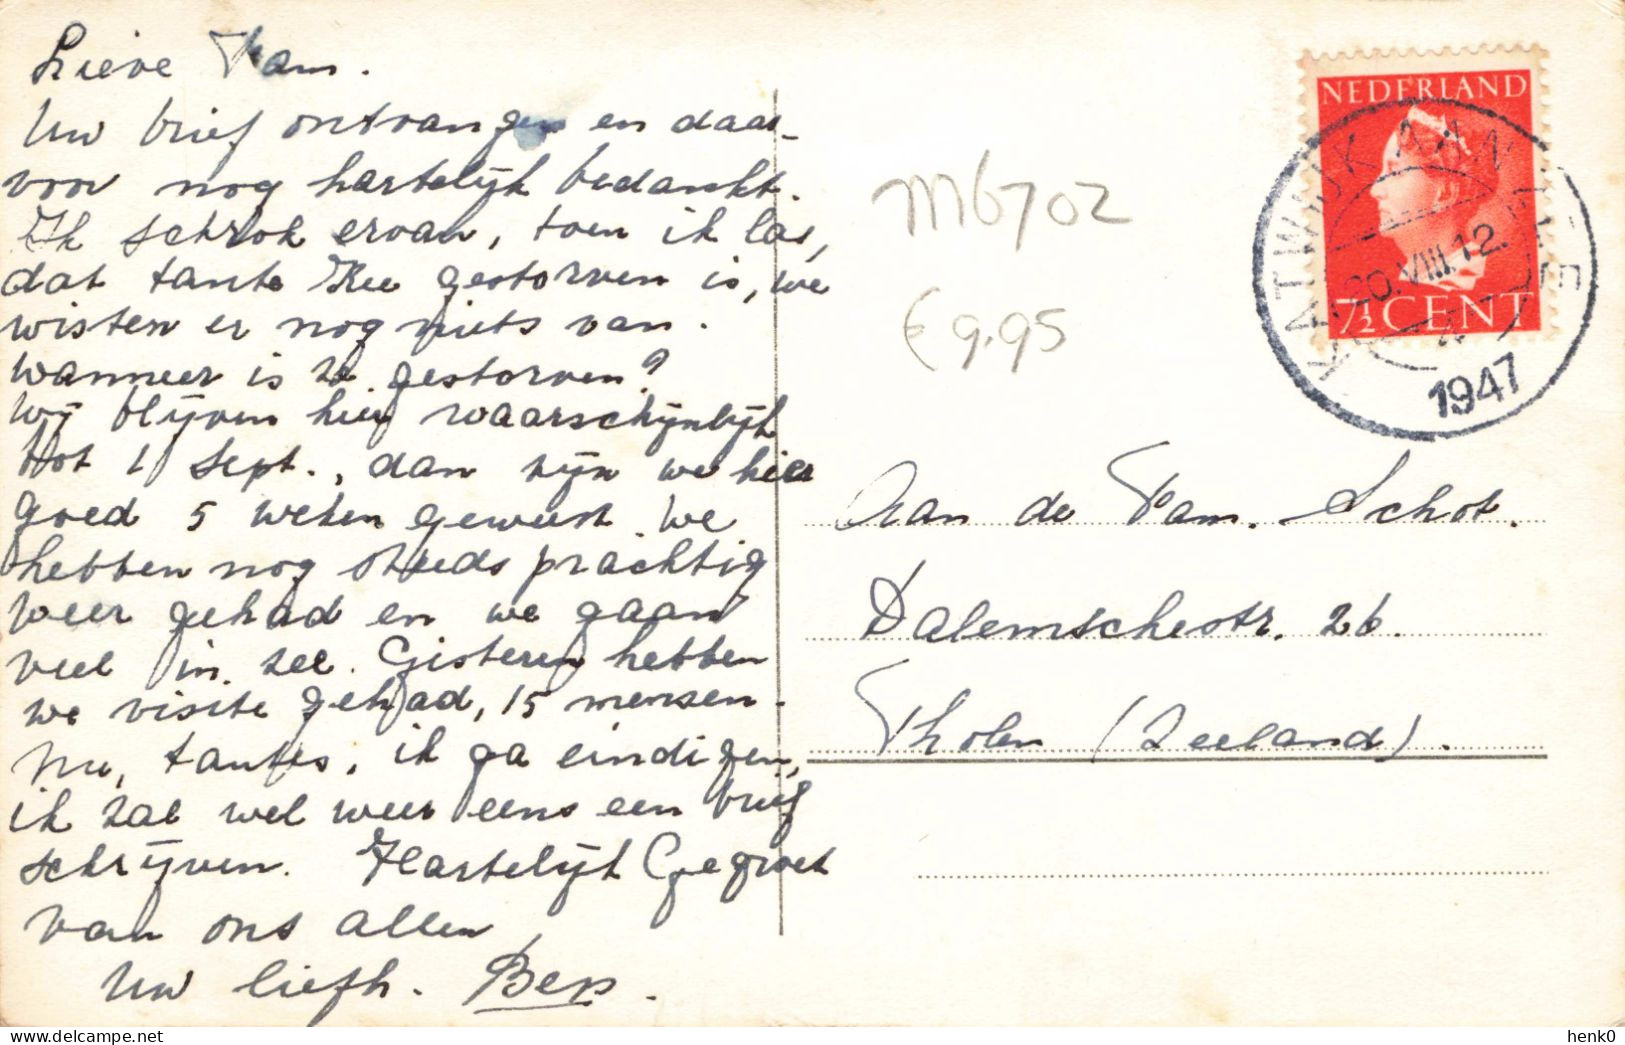 Lieve Fam.
Uw brief ontvangen en daar-
voor nog hartelijk bedankt.
Ik schrok ervan, toen ik las,
dat tante Kee gestorven is, we
wisten er nog niets van.
Wanneer is ze gestorven?
Wij blijven hier waarschijnlijk
tot 1 Sept., dan zijn we hier
goed 5 weken geweest. We
hebben nog steeds prachtig
weer gehad en we gaan
veel in zee. Gisteren hebben
we visite gehad, 15 mensen.
Nu, tantes, ik ga eindigen,
ik zal wel weer eens een brief
schrijven. Hartelijk Gegroet
van ons allen
Uw liefh. Bep.
M6702
€ 9.95
NEDERLAND
7½ CENT
KATWIJK AAN ZEE
20.VIII.12.
1947
Aan de Fam. Schot.
Dalemschestr. 26.
Tholen (Zeeland).
henk0